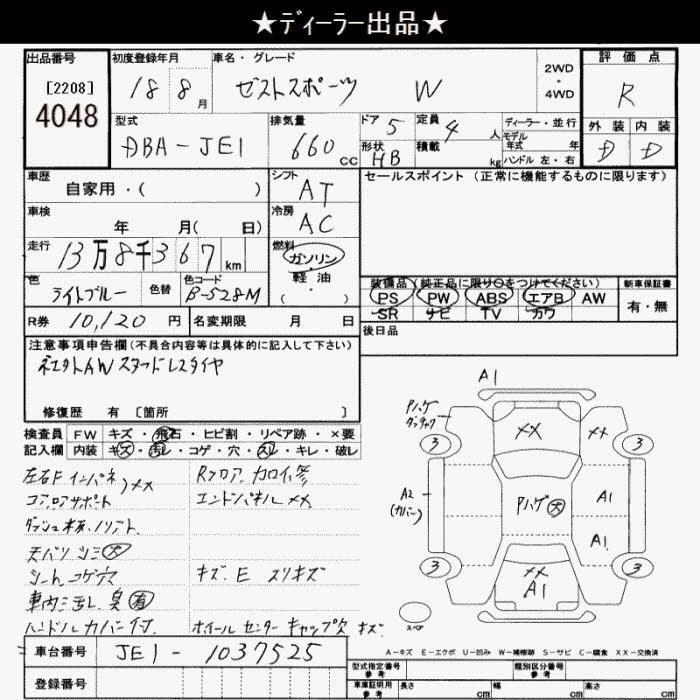 ★ディーラー出品★
出品番号 初度登録年月 車名・グレード 2WD・4WD 評価点
[2208] 18 8月 ゼストスポーツ W R
4048
型式 排気量 ドア 5 定員 4人 ディーラー・並行 外装 内装
DBA-JE1 660cc 形状 HB 積載 kg モデル年式 年 D D
ハンドル 左・右
車歴 自家用・( ) シフト AT セールスポイント(正常に機能するものに限ります)
車検 年 月( 日) 冷房 AC
走行 13万8千367km 燃料 ガソリン・軽油・( )
色 ライトブルー 色替 色コード B-528M
装備品(純正品に限り○をつけてください) 新車保証書
PS PW ABS エアB AW 有・無
SR ナビ TV カワ
R券 10,120円 名変期限 月 日 後日品
注意事項申告欄(不具合内容等は具体的に記入して下さい)
社外AWスタッドレスタイヤ
修復歴 有 [箇所 ]
検査員 FW キズ・飛石・ヒビ割・リペア跡・×要
記入欄 内装 キズ・汚レ・コゲ・穴・スレ・キレ・破レ
左右Fインパネ
コアロアサポート XX
Rフロア カロイ
エンドパネル XX
天バリ シミ 大
シート コゲ穴 キズ・E スリキズ
車内ヨゴレ、臭 有
ハンドルカバー付 ホイールセンターキャップ欠 キズ
A1
Pハゲ
3 XX XX 3
A2 (カバー) Pハゲ 大 A1
A1
3 XX A1 3
スペア
A-キズ E-エクボ U-凹み W-補修跡 S-サビ C-腐食 XX-交換済
車台番号 JE1-1037525
登録番号
型式指定番号 参考 類別区分番号 参考
車庫証明用 参考 長さ cm 幅 cm 高さ cm